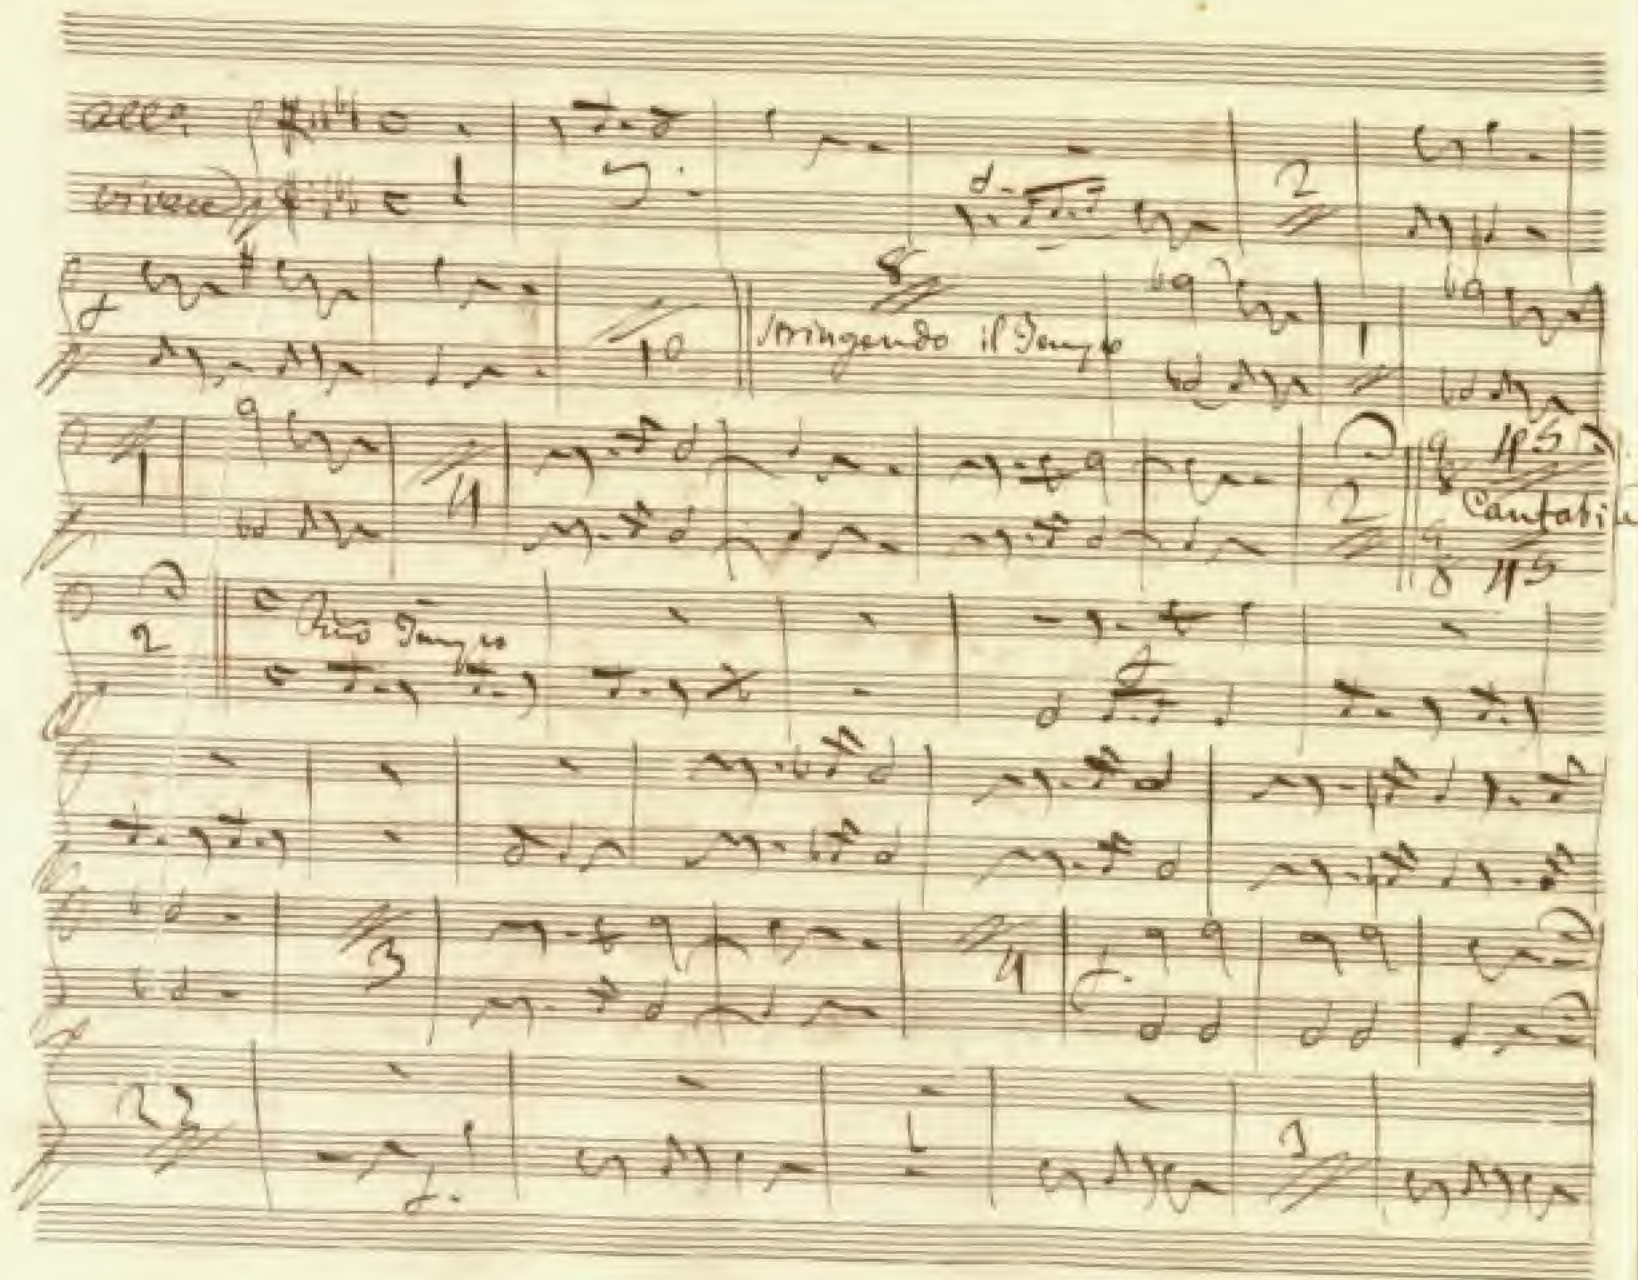 All.o
vivace
2
8
10
stringendo il Tempo
1
1
4
2
45
Cantabile
45
2
Primo Tempo
3
4
22
1